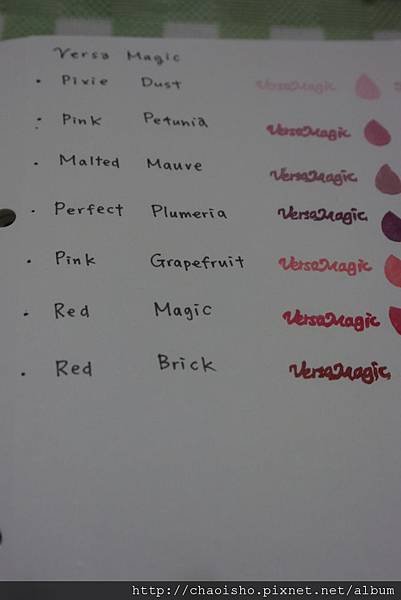 Versa Magic
• Pixie Dust VersaMagic
• Pink Petunia VersaMagic
• Malted Mauve VersaMagic
• Perfect Plumeria VersaMagic
• Pink Grapefruit VersaMagic
• Red Magic VersaMagic
• Red Brick VersaMagic
http://chaoisho.pixnet.net/album